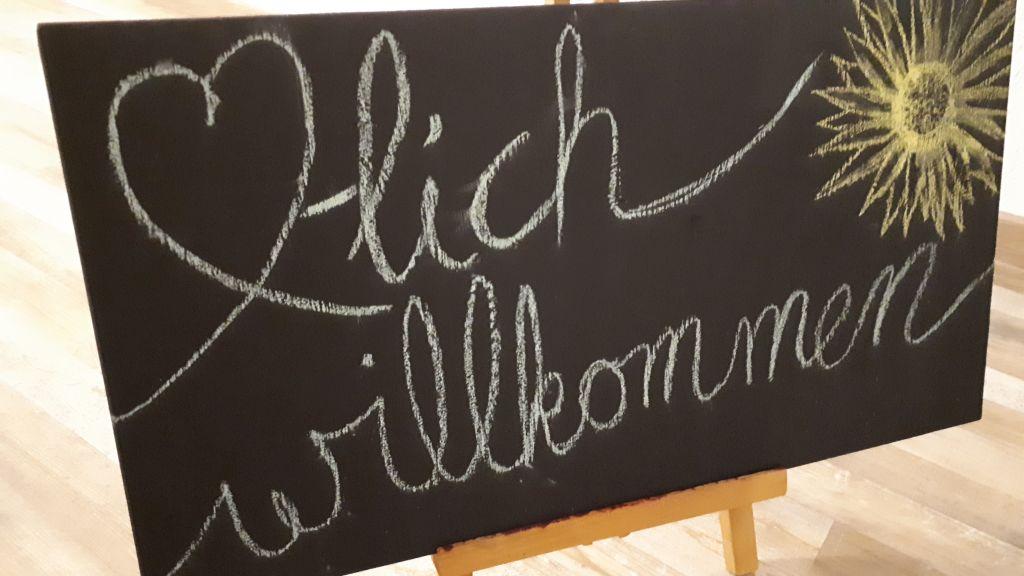 lich
willkommen